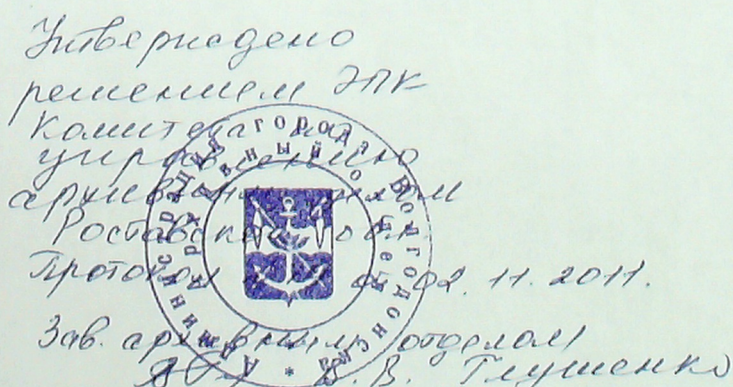 Утверждено
решением ЭПК
комитета по
управлению
архивным делом
Ростовской обл.
Протокол от 02.11.2011.
Зав. архивным отделом
В. Глушенко
Администрация города Волгодонска *
Архивный отдел